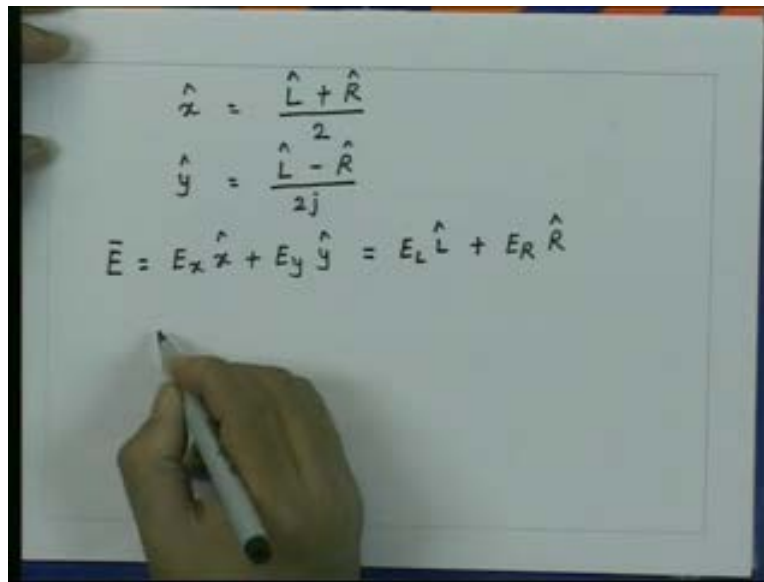 x̂ = (L̂ + R̂) / 2
ŷ = (L̂ - R̂) / 2j
Ē = Eₓ x̂ + E_y ŷ = E_L L̂ + E_R R̂